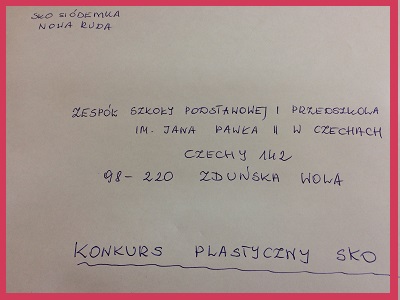 SKO SIÓDEMKA
NOWA RUDA
ZESPÓŁ SZKOŁY PODSTAWOWEJ I PRZEDSZKOLA
IM. JANA PAWŁA II W CZECHACH
CZECHY 142
98-220 ZDUŃSKA WOLA
KONKURS PLASTYCZNY SKO